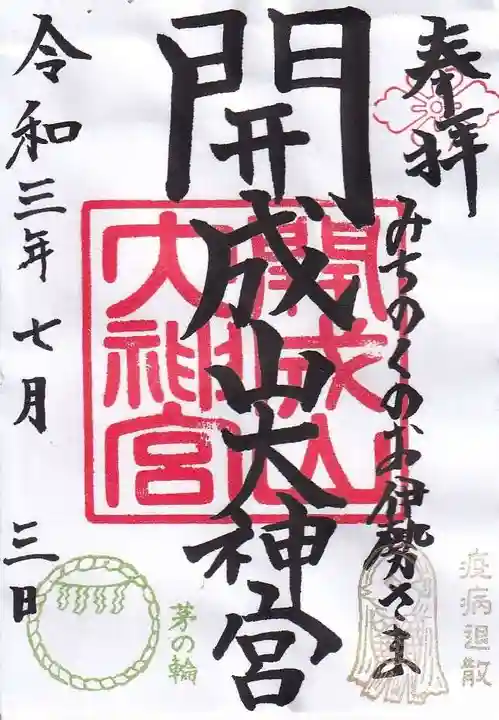 奉拝
みちのくのお伊勢さま
開成山大神宮
開成山
大神宮
令和三年七月三日
茅の輪
疫病退散